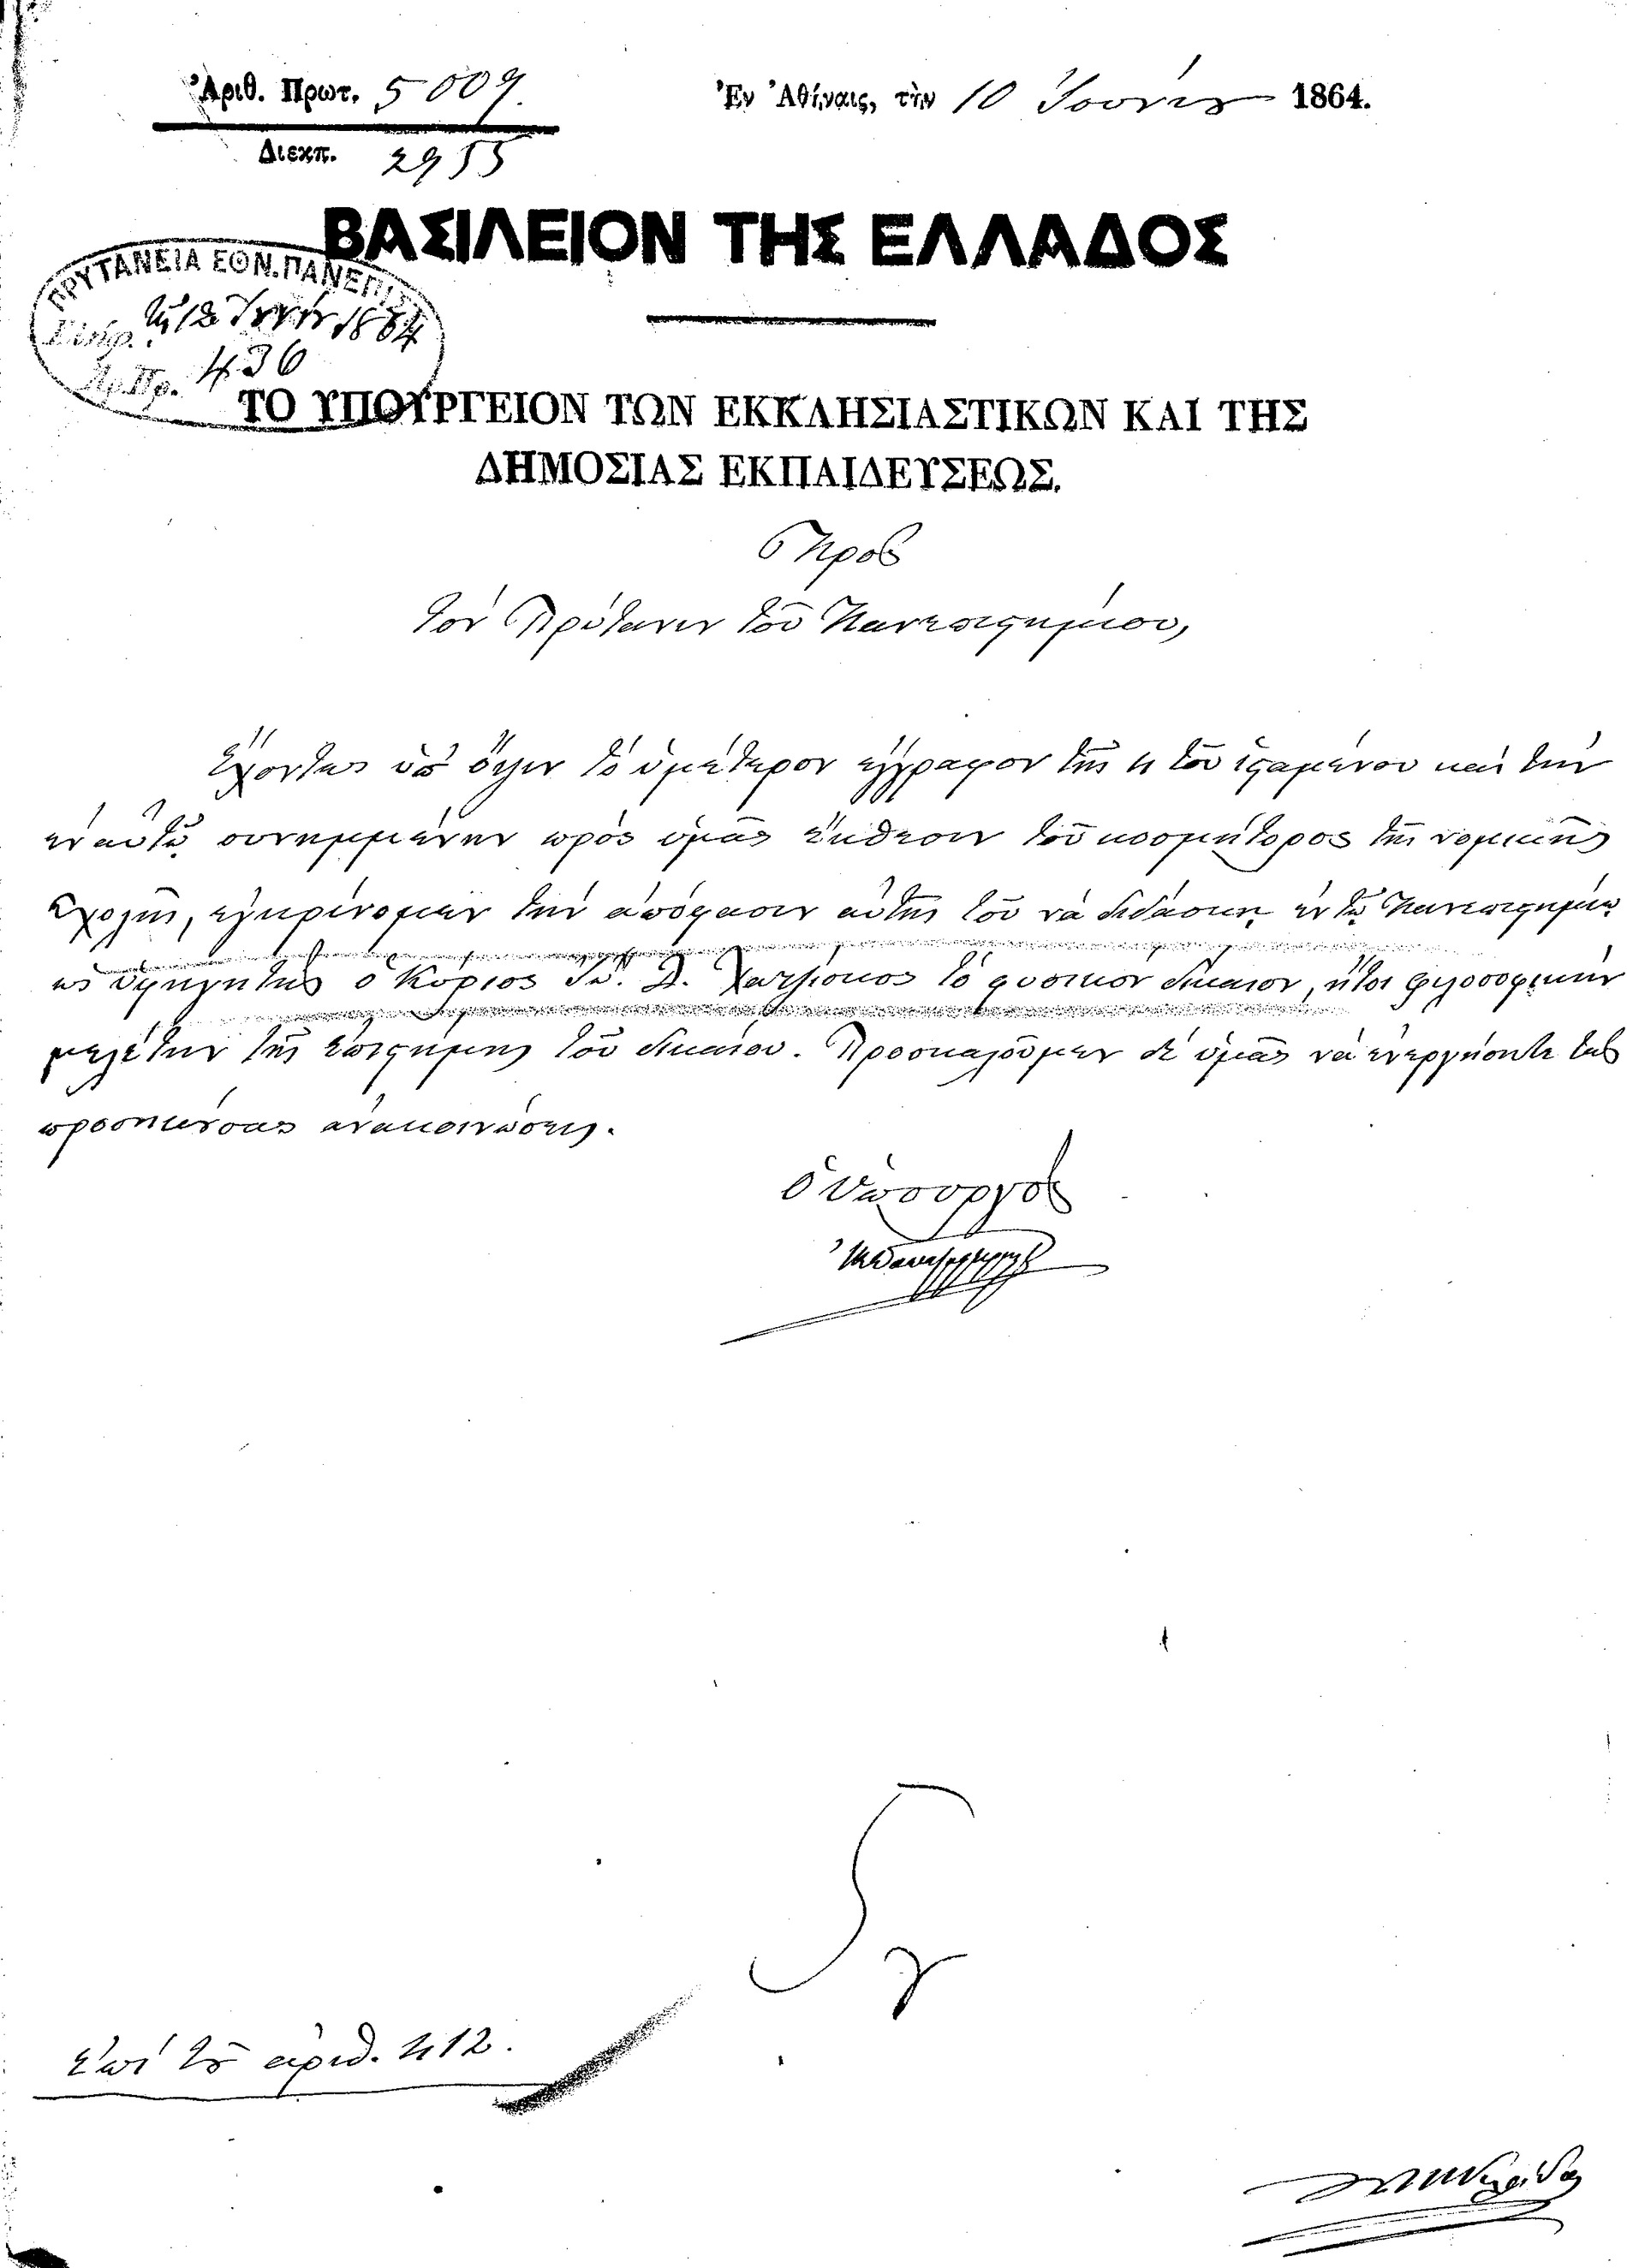 Ἀριθ. Πρωτ. 5009. Ἐν Ἀθήναις, τὴν 10 Ἰουνίου 1864.
Διεκπ. 2955
ΒΑΣΙΛΕΙΟΝ ΤΗΣ ΕΛΛΑΔΟΣ
ΠΡΥΤΑΝΕΙΑ ΕΘΝ. ΠΑΝΕΠΙΣ
τῇ 12 Ἰουνίου 1864
Ἀρ. Πρ. 436
ΤΟ ΥΠΟΥΡΓΕΙΟΝ ΤΩΝ ΕΚΚΛΗΣΙΑΣΤΙΚΩΝ ΚΑΙ ΤΗΣ
ΔΗΜΟΣΙΑΣ ΕΚΠΑΙΔΕΥΣΕΩΣ.
Πρὸς
τὸν Πρύτανιν τοῦ Πανεπιστημίου,
Ἔχοντες ὑπ' ὄψιν τὸ ὑμέτερον ἔγγραφον τῆς 4 τοῦ ἱσταμένου καὶ τὴν
ἐν αὐτῷ συνημμένην πρὸς ὑμᾶς ἔκθεσιν τοῦ κοσμήτορος τῆς νομικῆς
Σχολῆς, ἐγκρίνομεν τὴν ἀπόφασιν αὐτῆς τοῦ νὰ διδάσκῃ ἐν τῷ Πανεπιστημίῳ
ὡς ὑφηγητὴς ὁ Κύριος Δ. Χατζίσκος τὸ φυσικὸν δίκαιον, ἤτοι φιλοσοφικὴν
μελέτην τῆς ἐπιστήμης τοῦ δικαίου. Προσκαλοῦμεν δὲ ὑμᾶς νὰ ἐνεργήσητε τὰς
προσηκούσας ἀνακοινώσεις.
Ὁ Ὑπουργὸς
Ἐπὶ τοῦ ἀριθ. 412.